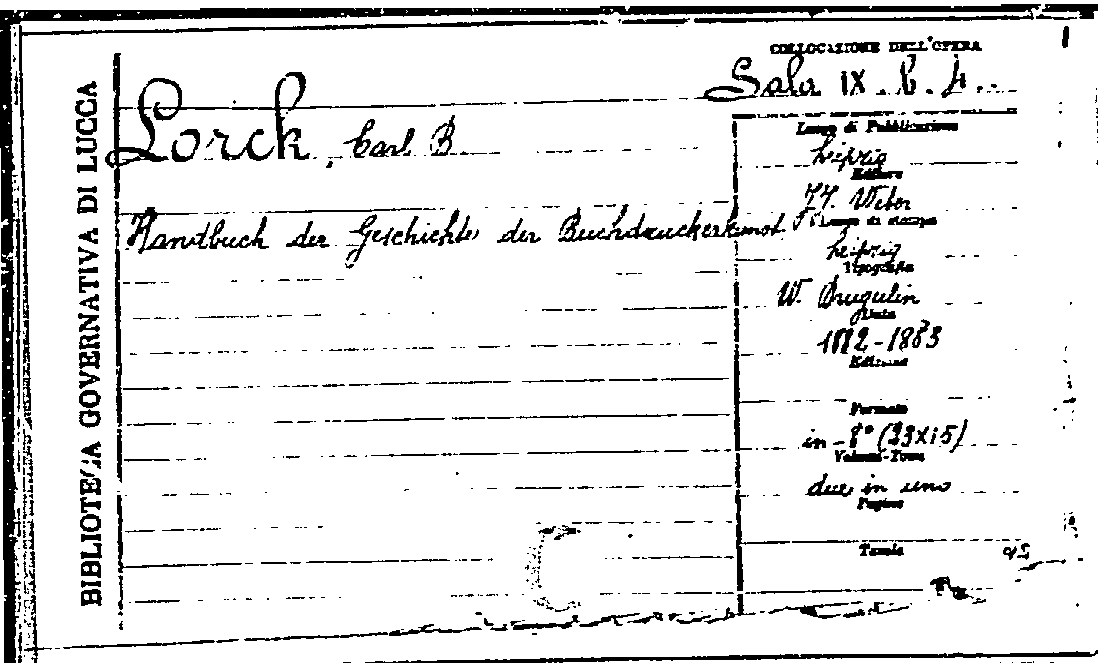 BIBLIOTECA GOVERNATIVA DI LUCCA
COLLOCAZIONE DELL'OPERA
Sala IX. B. 4.
Lorck, Carl B.
Handbuch der Geschichte der Buchdruckerkunst
Luogo di Pubblicazione
Leipzig
Editore
J.J. Weber
Luogo di stampa
Leipzig
Tipografia
W. Drugulin
Data
1882-1883
Edizione
Formato
in-8° (23x15)
Volumi-Tomo
due in uno
Pagine
Tavole